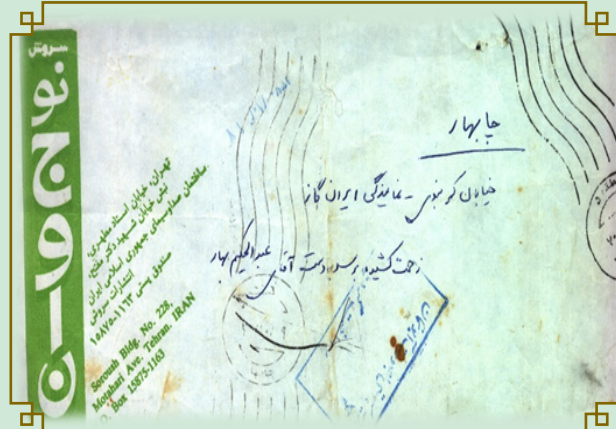 سروش
نوجوان
تهران، خیابان استاد مطهری،
نبش خیابان شهید دکتر مفتح،
ساختمان صدا و سیمای جمهوری اسلامی ایران
انتشارات سروش
صندوق پستی ۱۱۶۳-۱۵۸۷۵
Soroush Bldg. No. 228,
Motahari Ave. Tehran. IRAN
O. Box 15875-1163
چابهار
خیابان - نمایندگی ایران گاز
زحمت کشیده برسد بدست آقای عبدالحکیم بهار